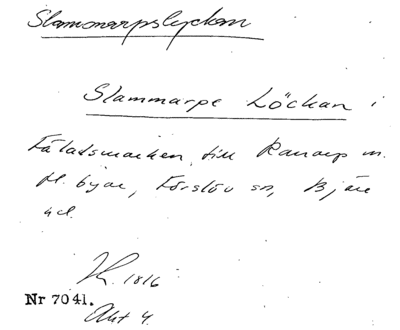 Slammarpslyckan
Slammarpe Löckan i
Fäladsmarken till Ranarp m.
fl. byar, Förslöv sn, Bjäre
hd.
K. 1816
Nr 7041.
Akt 4.